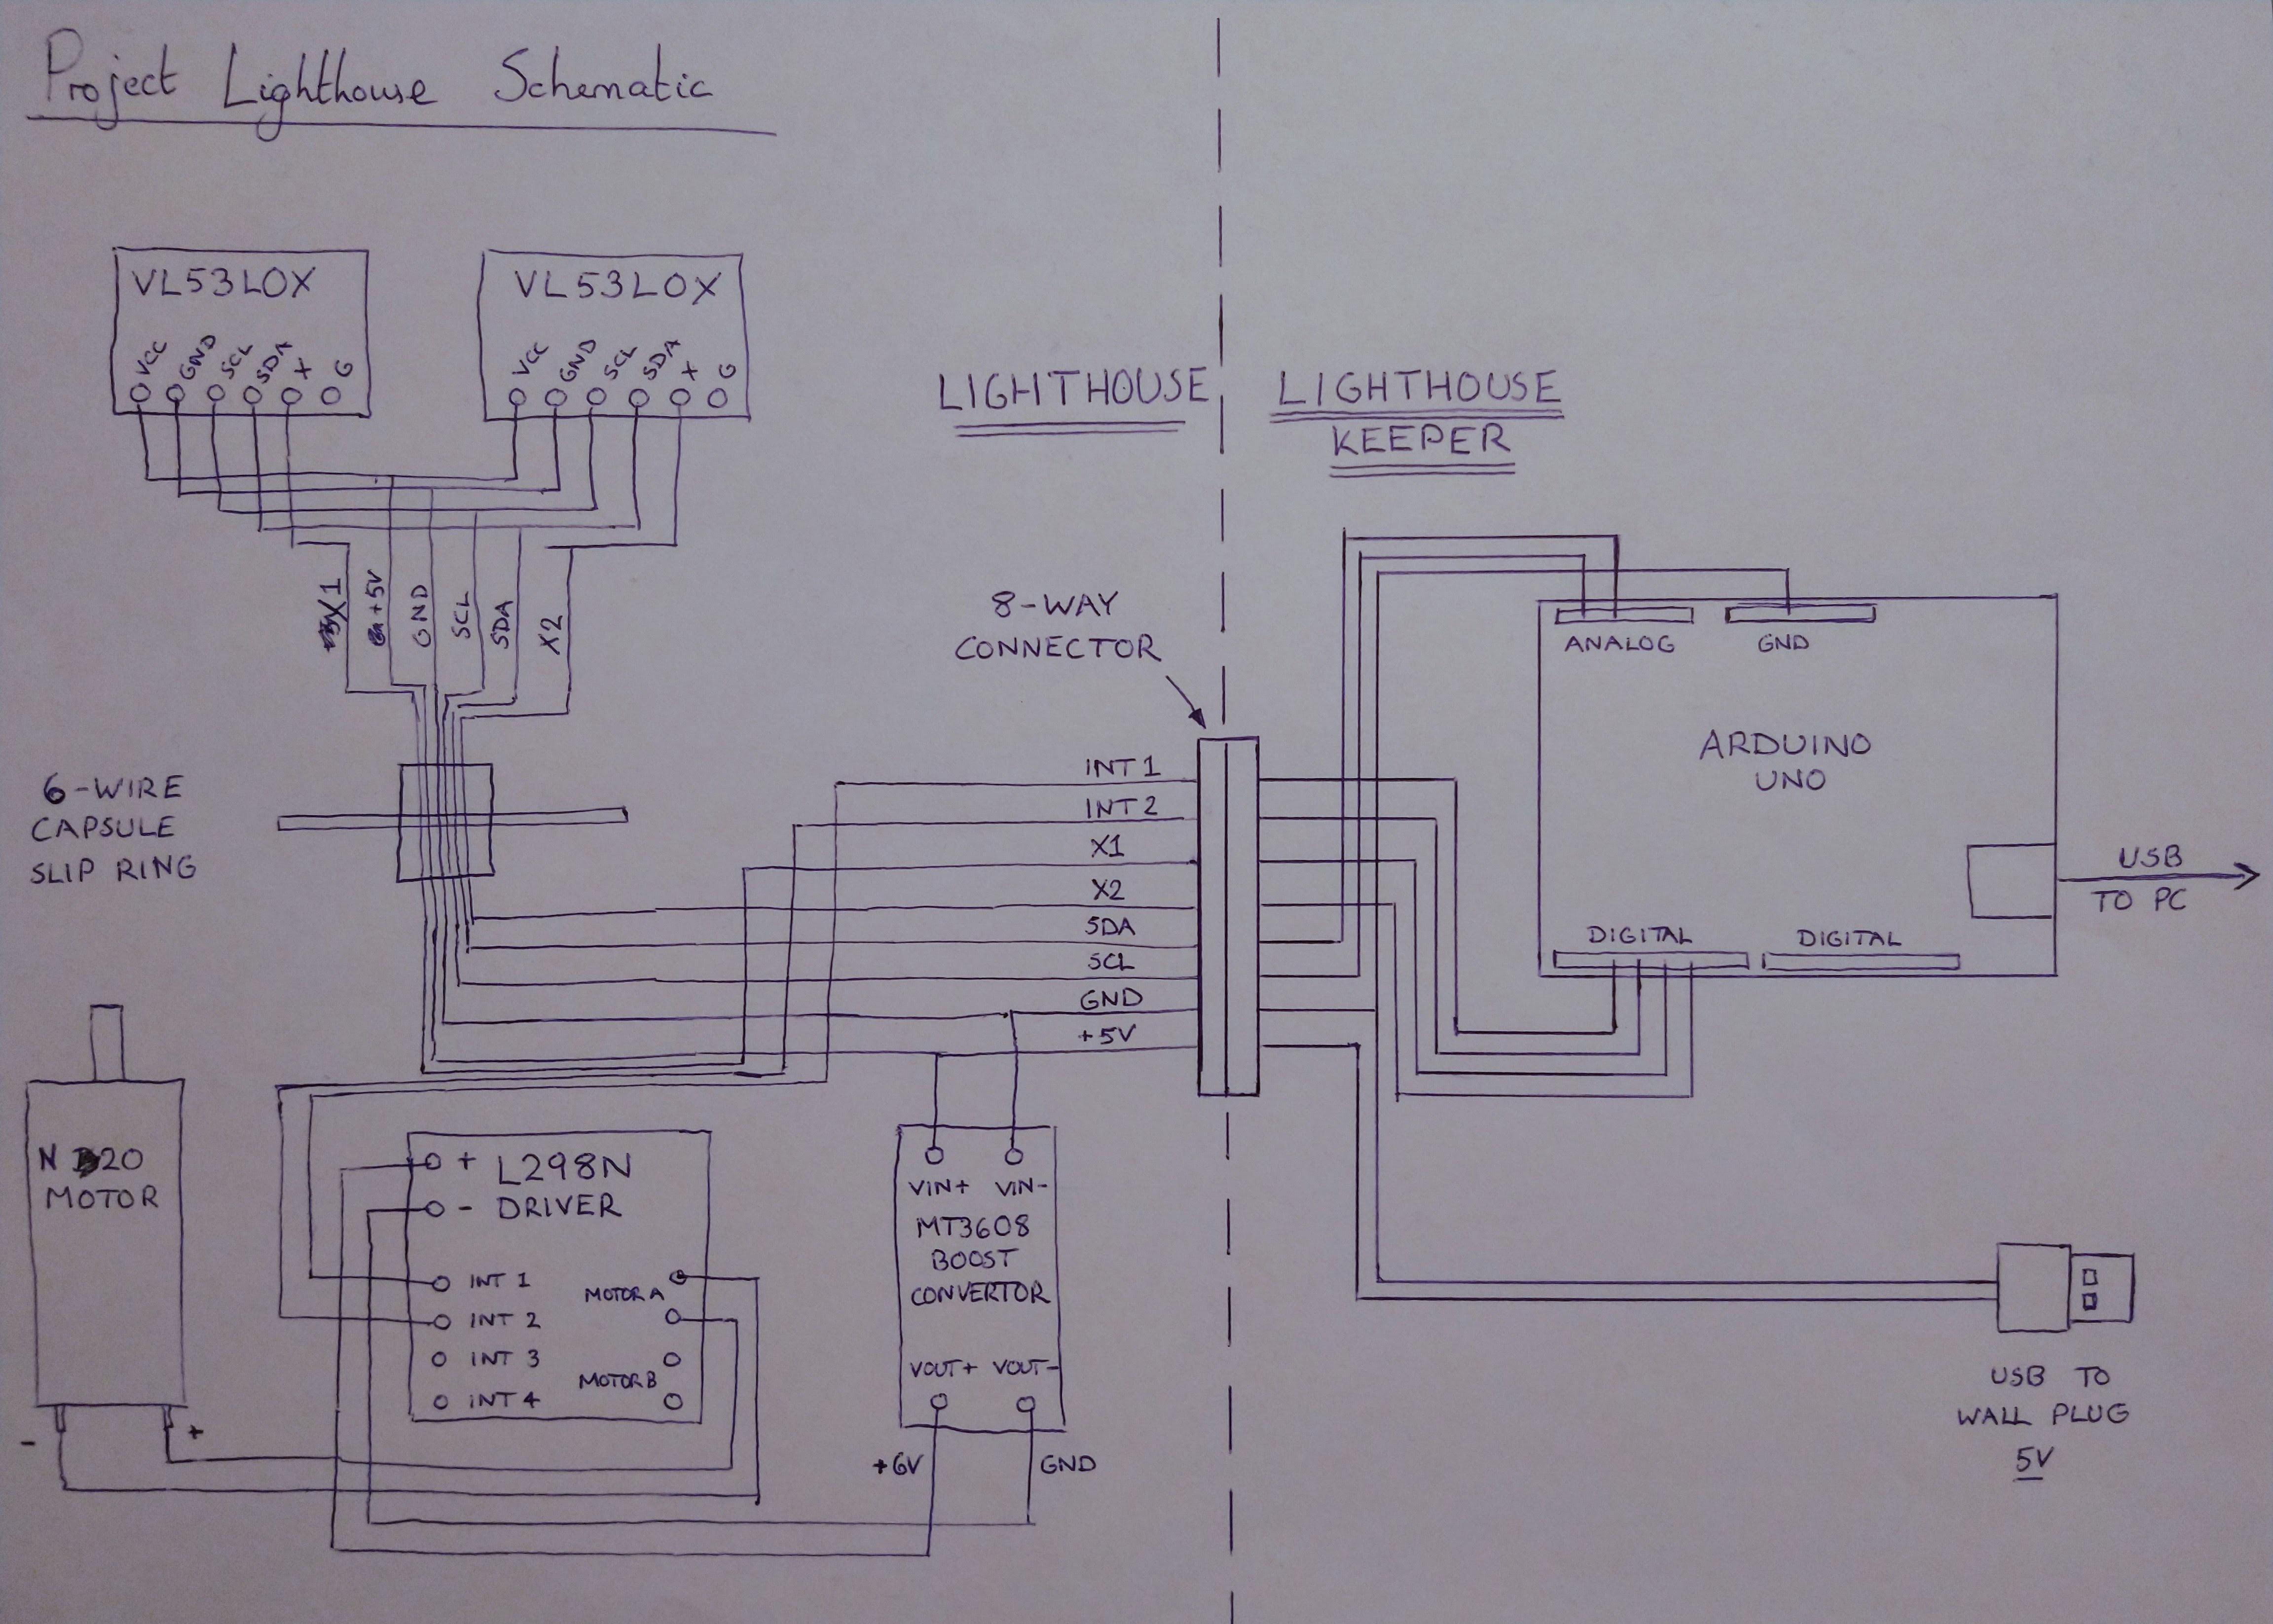 Project Lighthouse Schematic
VL53L0X
VCC GND SCL SDA X G
VL53L0X
VCC GND SCL SDA X G
LIGHTHOUSE
LIGHTHOUSE
KEEPER
X1
+5V
GND
SCL
SDA
X2
8-WAY
CONNECTOR
ANALOG
GND
ARDUINO
UNO
DIGITAL
DIGITAL
USB
TO PC
6-WIRE
CAPSULE
SLIP RING
INT 1
INT 2
X1
X2
SDA
SCL
GND
+5V
N20
MOTOR
-
+
+ L298N
- DRIVER
INT 1
INT 2
INT 3
INT 4
MOTOR A
MOTOR B
VIN+ VIN-
MT3608
BOOST
CONVERTOR
VOUT+ VOUT-
+6V
GND
USB TO
WALL PLUG
5V